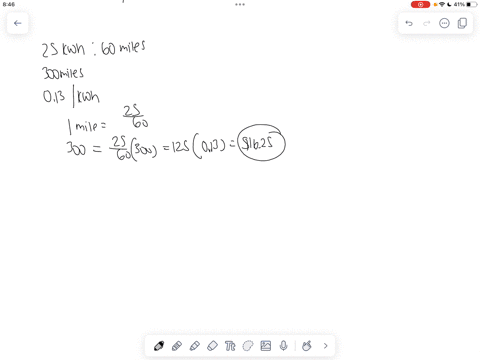 8:46
41%
25 kwh : 60 miles
300 miles
0.13 | kwh
1 mile = 25/60
300 = 25/60 (300) = 125 (0.13) = $16.25